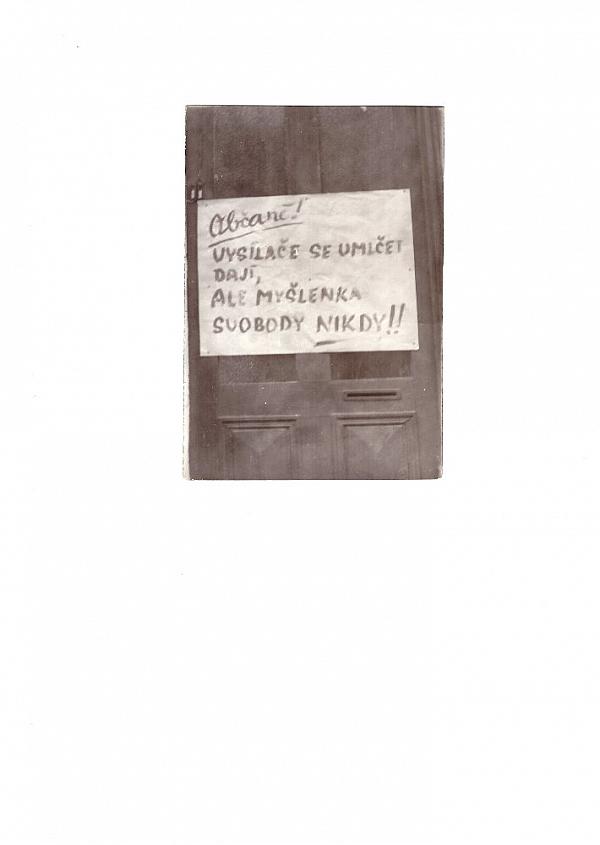 Občané!
VYSÍLAČE SE UMLČET
DAJÍ,
ALE MYŠLENKA
SVOBODY NIKDY!!